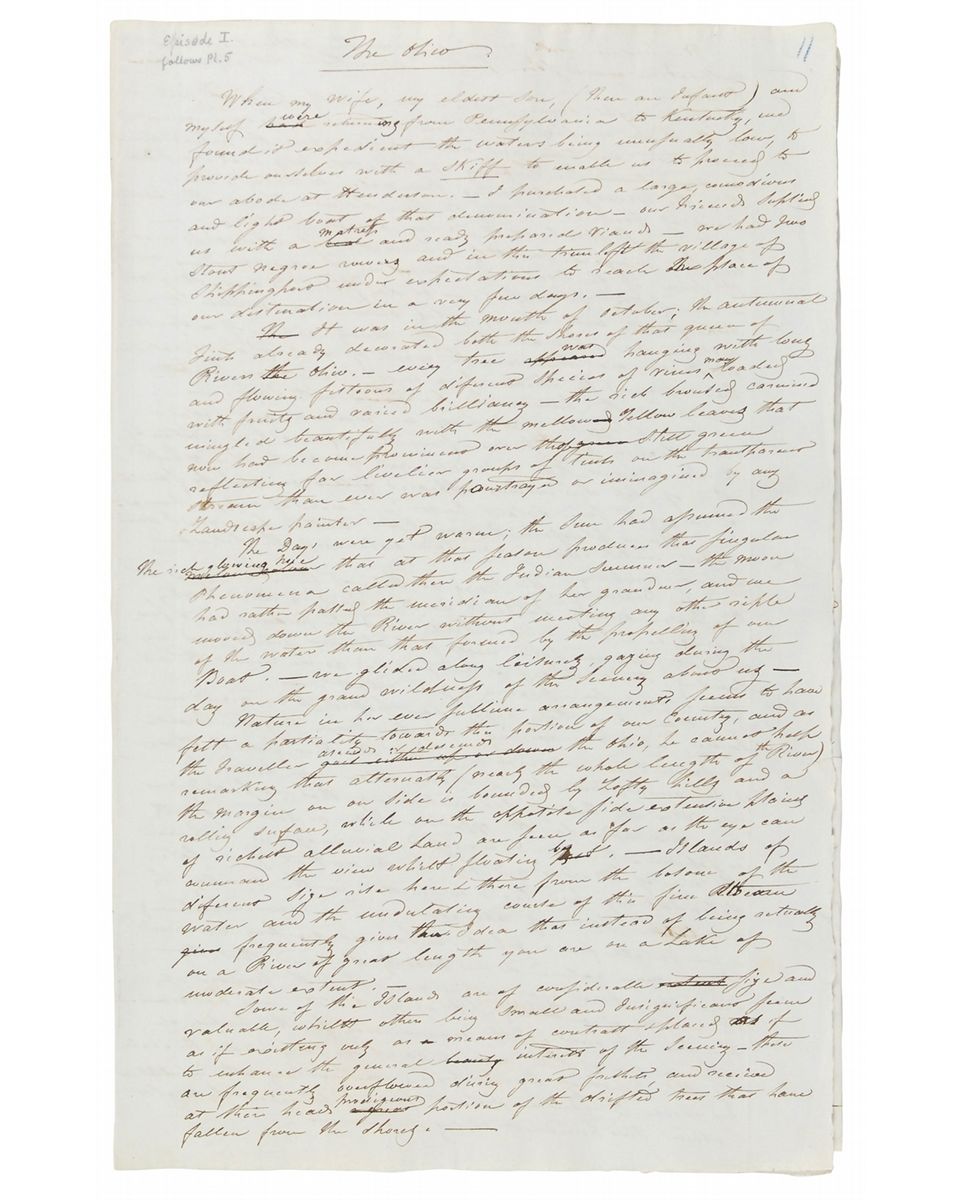 Episode I.
follows Pl. 5
11
The Ohio
When my Wife, my eldest son, (then an Infant) and
myself were returning from Pennsylvania to Kentucky, we
found it expedient the waters being unusually low, to
provide ourselves with a Skiff to enable us to proceed to
our abode at Henderson. — I purchased a large, comodious
and light boat of that denomination — our friends
us with a matress and ready prepared viands — we had two
Stout Negroe rowers and in this trim left the village of
Shippingport under expectations to reach the place of
our destination in a very few days. —
The It was in the month of October; The autumnal
Tints already decorated both the Shores of that queen of
Rivers the Ohio. — every tree was hanging with long
and flowing festoons of different species of vines many loaded
with fruits and varied brilliancy — the rich bronzed carmined
mingled beautifully with the mellowed Yellow leaves that
now had become prominent over the Still green
reflecting far livelier groups of tints on the transparent
Stream than ever was pourtrayed or immagined by any
Landscape painter —
The Days were yet warm; the Sun had assumed the
The rich glowing hue that at that season produces that singular
Phenomena called then the Indian Summer — the moon
had rather passed the meridian of her grandeur, and we
moved down the River without meeting any other ripple
of the water than that formed by the propelling of our
Boat. — we glided along leisurely, gazing during the
day on the grand wildness of the Scenery about us —
Nature in her ever sublime arrangements seems to have
felt a partiality towards this portion of our Country, and as
the Traveller ascends or descends goes either up or down the Ohio, he cannot help
remarking that alternately (nearly the whole length of the River)
the margin on on side is bounded by Lofty Hills and a
rolling surface, while on the opposite side extensive plains
of richest alluvial Land are seen as far as the eye can
command the view whilst floating by. — Islands of
different Size rise here & there from the bosome of the
water and the undulating course of this fine Stream
gives frequently gives the Idea that instead of being actually
on a River of great length you are on a Lake of
moderate extent.
Some of the Islands are of considerable extent size and
valuable, whilst others being Small and Insignificant seem
as if existing only as means of contrast & placed as if
to enhance the general beauty interest of the Scenery — these
are frequently overflowed during great freshets, and receive
at their heads prodigious a great portion of the drifted trees that have
fallen from the Shores. —